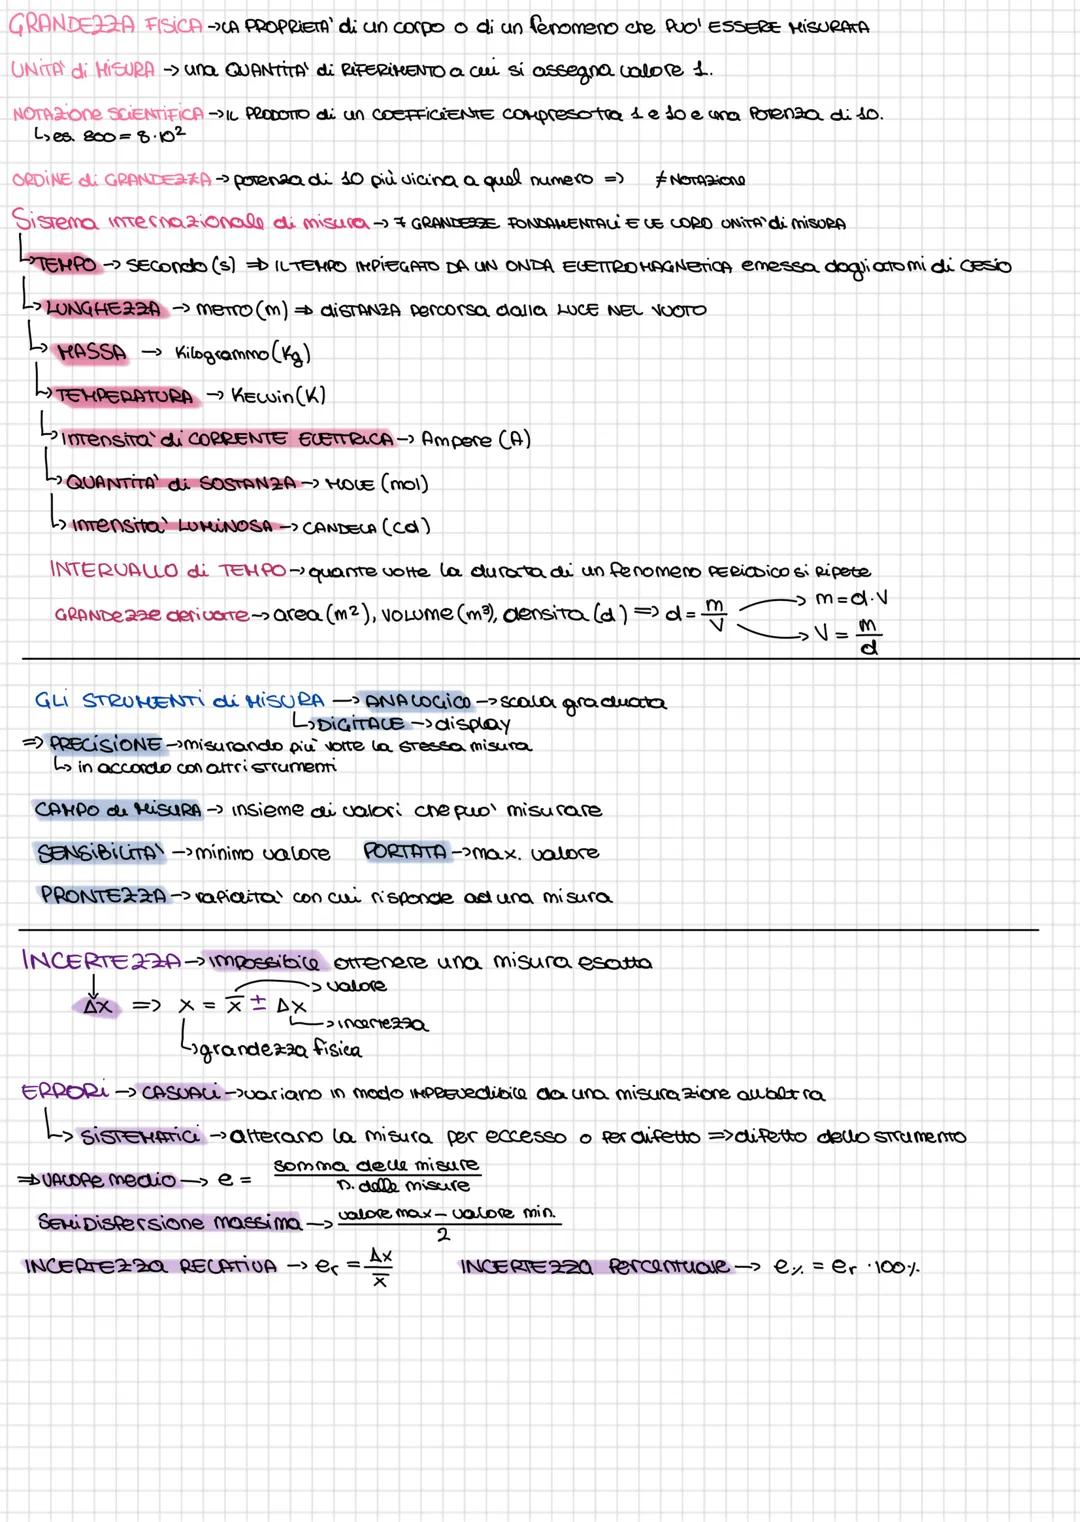 GRANDEZZA FISICA → LA PROPRIETA' di un corpo o di un fenomeno che PUO' ESSERE MISURATA
UNITA' di MISURA → una QUANTITA' di RIFERIMENTO a cui si assegna valore 1.
NOTAZIONE SCIENTIFICA → IL PRODOTTO di un COEFFICIENTE compreso tra 1 e 10 e una POTENZA di 10.
↳ es. 800 = 8·10²
ORDINE di GRANDEZZA → potenza di 10 più vicina a quel numero => ≠ NOTAZIONE
Sistema internazionale di misura → 7 GRANDEZZE FONDAMENTALI E LE LORO UNITA' di MISURA
↳ TEMPO → SECONDO (s) => IL TEMPO IMPIEGATO DA UN ONDA ELETTROMAGNETICA emessa dagli atomi di cesio
↳ LUNGHEZZA → METRO (m) => DISTANZA percorsa dalla LUCE NEL VUOTO
↳ MASSA → Kilogrammo (Kg)
↳ TEMPERATURA → KELVIN (K)
↳ INTENSITA' di CORRENTE ELETTRICA → Ampere (A)
↳ QUANTITA' di SOSTANZA → MOLE (mol)
↳ INTENSITA' LUMINOSA → CANDELA (cd)
INTERVALLO di TEMPO → quante volte la durata di un fenomeno PERIODICO si Ripete
GRANDEZZE derivate → area (m²), VOLUME (m³), densita (d) => d = m/V → m = d·V
→ V = m/d
GLI STRUMENTI di MISURA → ANALOGICO → scala graduata
↳ DIGITALE → display
=> PRECISIONE → misurando piu' volte la stessa misura
↳ in accordo con altri strumenti
CAMPO di MISURA → insieme di valori che puo' misurare
SENSIBILITA' → minimo valore PORTATA → max. valore
PRONTEZZA → rapidita' con cui risponde ad una misura
INCERTEZZA → impossibile ottenere una misura esatta
→ valore
↓ Δx => x = x̅ ± Δx
→ incertezza
↳ grandezza fisica
ERRORI → CASUALI → variano in modo IMPREVEDIBILE da una misurazione all'altra
↳ SISTEMATICI → alterano la misura per eccesso o per difetto => difetto dello strumento
=> VALORE medio → e = somma delle misure / n. delle misure
SemiDispersione massima → valore max - valore min. / 2
INCERTEZZA RELATIVA → er = Δx / x̅ INCERTEZZA Percentuale → e% = er · 100%